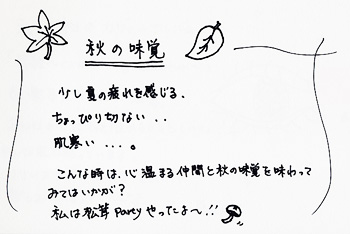 秋の味覚
少し夏の疲れを感じる.
ちょっぴり切ない..
肌寒い...。
こんな時は、心温まる仲間と秋の味覚を味わって
みてはいかが?
私は松茸Partyやったよ〜!!